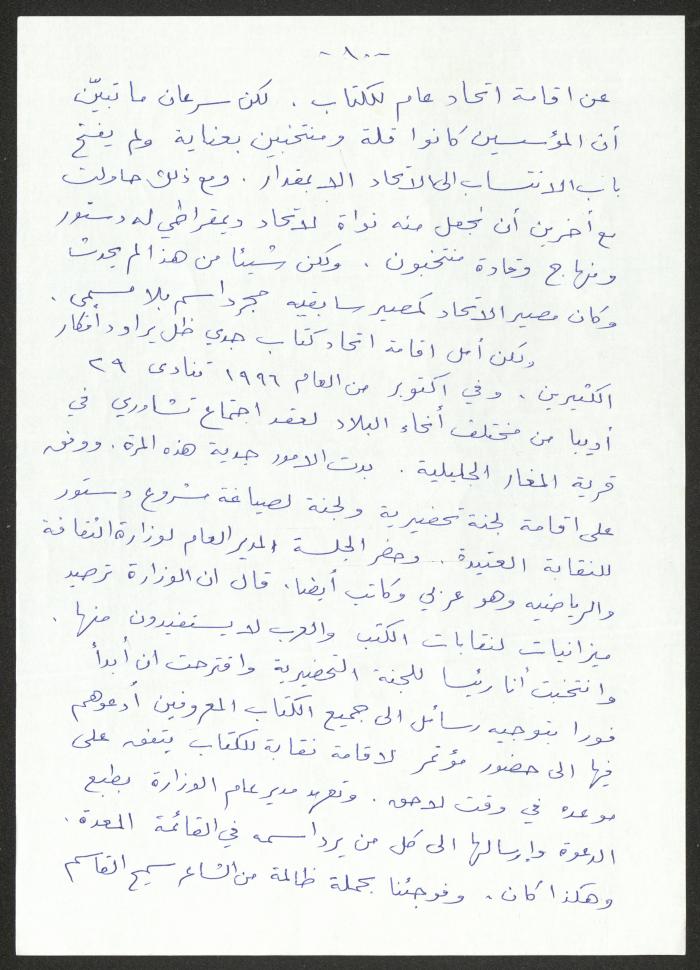 -١٠-
عن اقامة اتحاد عام للكتاب . لكن سرعان ما تبيّن
أن المؤسسين كانوا قلة ومنتخبين بعناية ولم يفتح
باب الانتساب الى الاتحاد الا بمقدار . ومع ذلك حاولت
مع آخرين أن نجعل منه نواة لاتحاد ديمقراطي له دستور
ومنهاج وقادة منتخبون . ولكن شيئا من هذا لم يحدث
وكان مصير الاتحاد كمصير سابقيه مجرد اسم بلا مسمى .
ولكن أمل اقامة اتحاد كتاب جدي ظل يراود أفكار
الكثيرين . وفي اكتوبر من العام ١٩٩٦ تنادى ٢٩
أديبا من مختلف أنحاء البلاد لعقد اجتماع تشاوري في
قرية المغار الجليلية . بدت الامور جدية هذه المرة . ووفق
على اقامة لجنة تحضيرية ولجنة لصياغة مشروع دستور
للنقابة العتيدة . وحضر الجلسة المدير العام لوزارة الثقافة
والرياضة وهو عربي وكاتب أيضا . قال ان الوزارة ترصد
ميزانيات لنقابات الكتب والعرب لا يستفيدون منها .
وانتخبت أنا رئيسا للجنة التحضيرية واقترحت ان أبدأ
فورا بتوجيه رسائل الى جميع الكتاب المعروفين أدعوهم
فيها الى حضور مؤتمر لاقامة نقابة للكتاب يتفق على
موعده في وقت لاحق . وتعهد مدير عام الوزارة بطبع
الدعوة وإرسالها الى كل من يرد اسمه في القائمة المعدة .
وهكذا كان . وفوجئنا بحملة ظالمة من الشاعر سميح القاسم